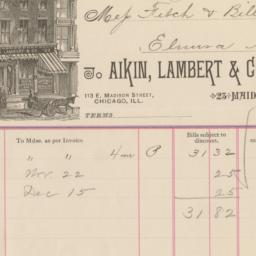 Mess Fitch & Bill
Elmira
To AIKIN, LAMBERT & C
113 E. MADISON STREET,
CHICAGO, ILL.
23 MAID
TERMS
To Mdse. as per Invoice
Bills subject to
discount.
" " 4 mo 31 32
Nov. 22 25
Dec 15 25
31 82